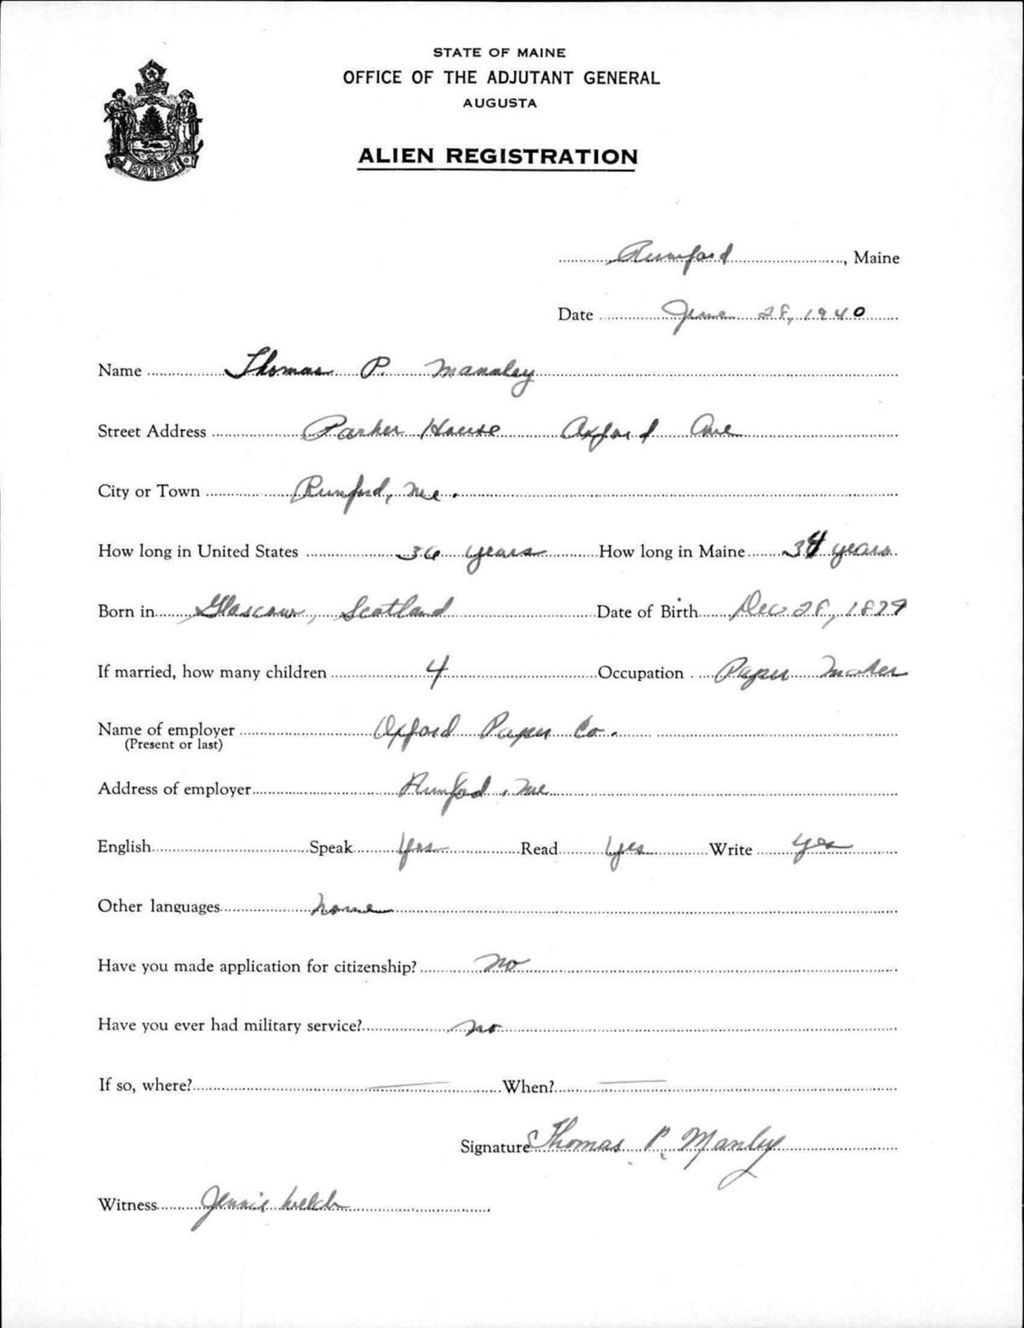 STATE OF MAINE
OFFICE OF THE ADJUTANT GENERAL
AUGUSTA
ALIEN REGISTRATION
MAINE
Rumford, Maine
Date June 28, 1940
Name Thomas P. Mannley
Street Address Parker House Oxford Ave
City or Town Rumford, Me.
How long in United States 36 years How long in Maine 34 years
Born in Glascow, Scotland Date of Birth Dec 28, 1879
If married, how many children 4 Occupation Paper Maker
Name of employer Oxford Paper Co.
(Present or last)
Address of employer Rumford, Me
English Speak Yes Read Yes Write Yes
Other languages none
Have you made application for citizenship? No
Have you ever had military service? no
If so, where? — When? —
Signature Thomas P. Manley
Witness Jennie Welch